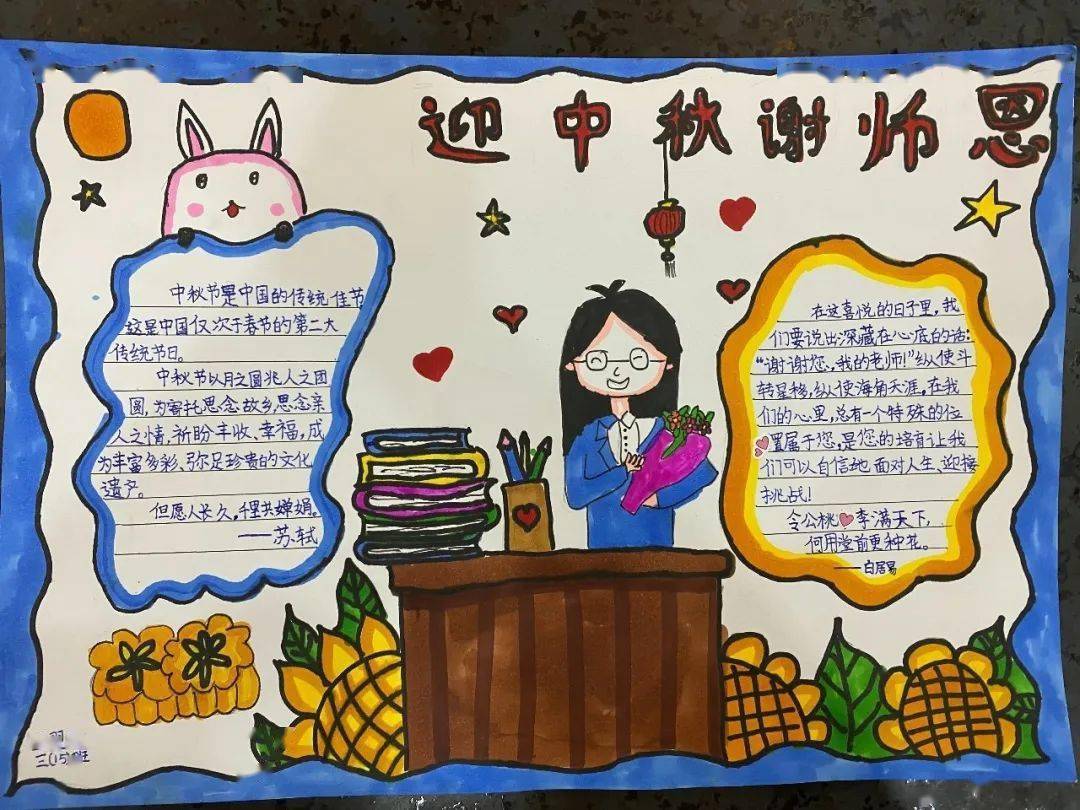 迎中秋谢师恩
中秋节是中国的传统佳节
这是中国仅次于春节的第二大
传统节日。
中秋节以月之圆兆人之团
圆,为寄托思念故乡,思念亲
人之情,祈盼丰收、幸福,成
为丰富多彩、弥足珍贵的文化
遗产。
但愿人长久,千里共婵娟。
——苏轼
在这喜悦的日子里,我
们要说出深藏在心底的话:
“谢谢您,我的老师!”纵使斗
转星移,纵使海角天涯,在我
们的心里,总有一个特殊的位
置属于您,是您的培育让我
们可以自信地面对人生、迎接
挑战!
令公桃李满天下,
何用堂前更种花。
——白居易
三(15)班